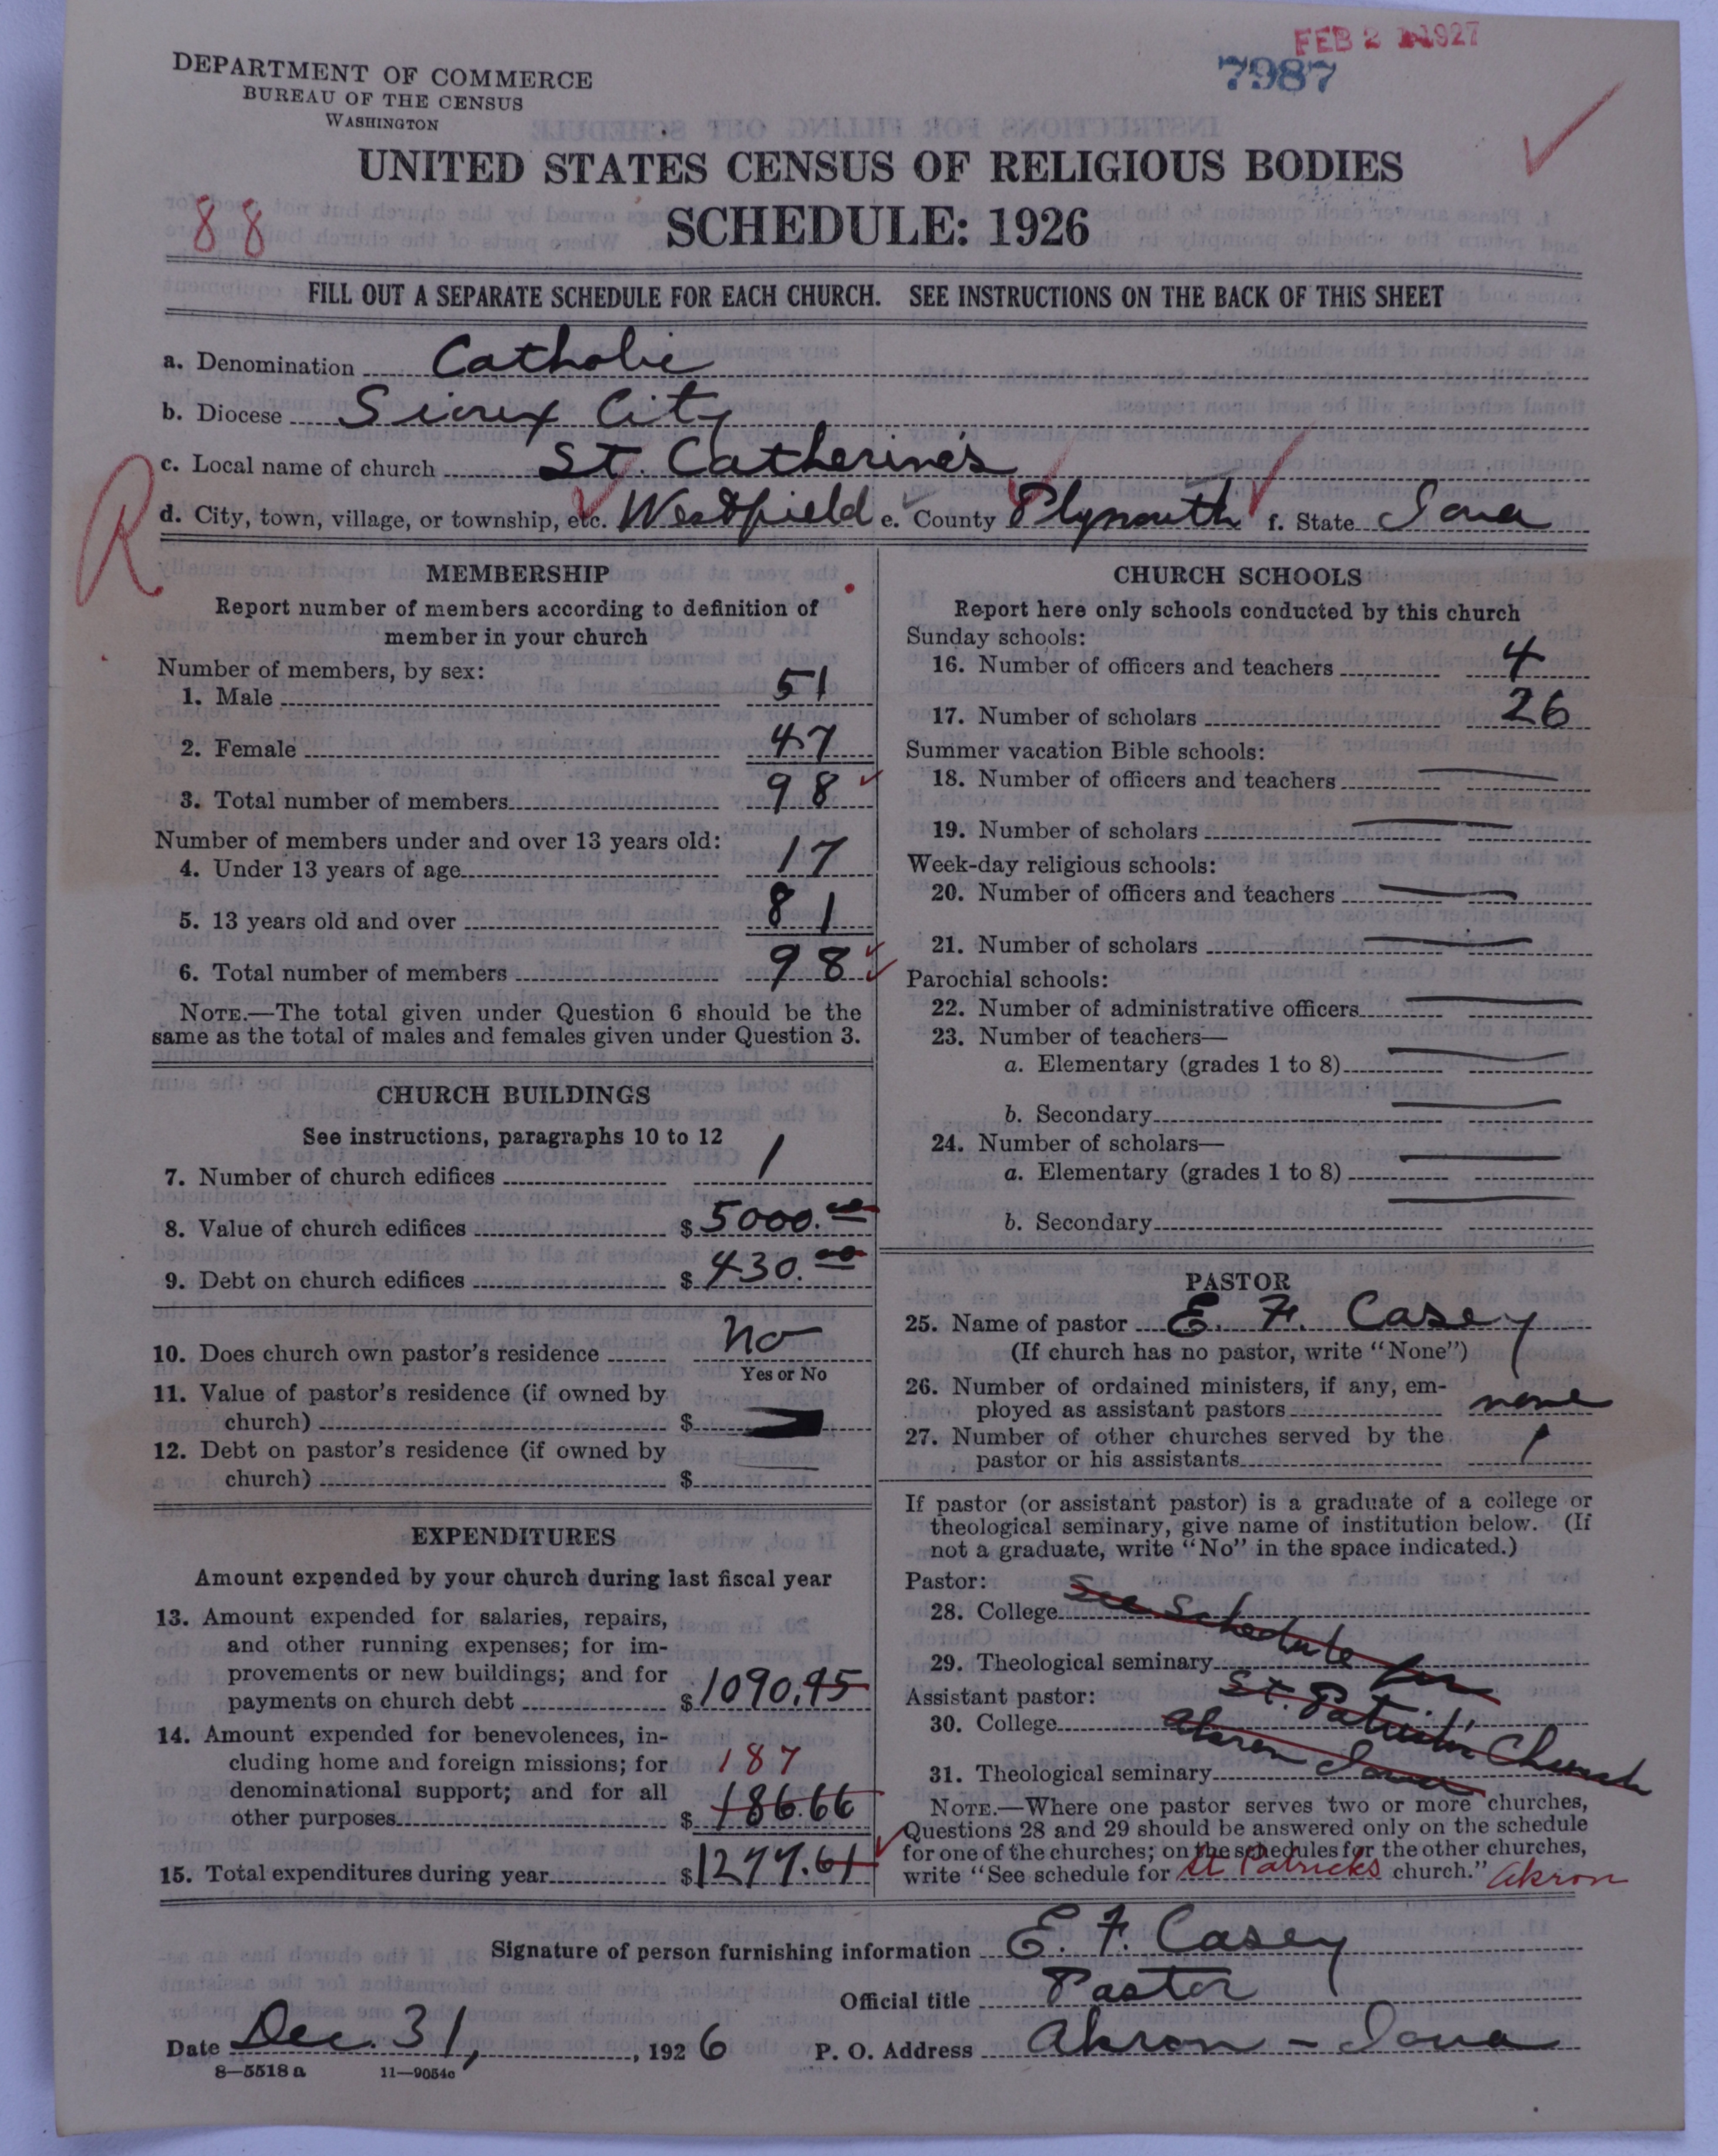 FEB 2 1927
7987
DEPARTMENT OF COMMERCE
BUREAU OF THE CENSUS
WASHINGTON
UNITED STATES CENSUS OF RELIGIOUS BODIES
88
SCHEDULE: 1926
FILL OUT A SEPARATE SCHEDULE FOR EACH CHURCH. SEE INSTRUCTIONS ON THE BACK OF THIS SHEET
a. Denomination Catholic
b. Diocese Sioux City
c. Local name of church St. Catherine's
R
d. City, town, village, or township, etc. Westfield e. County Plymouth f. State Iowa
MEMBERSHIP
Report number of members according to definition of
member in your church
Number of members, by sex:
1. Male 51
2. Female 47
3. Total number of members 98
Number of members under and over 13 years old:
4. Under 13 years of age 17
5. 13 years old and over 81
6. Total number of members 98
NOTE.—The total given under Question 6 should be the
same as the total of males and females given under Question 3.
CHURCH BUILDINGS
See instructions, paragraphs 10 to 12
7. Number of church edifices 1
8. Value of church edifices $5000.00
9. Debt on church edifices $430.00
10. Does church own pastor's residence No
Yes or No
11. Value of pastor's residence (if owned by
church) $
12. Debt on pastor's residence (if owned by
church) $
EXPENDITURES
Amount expended by your church during last fiscal year
13. Amount expended for salaries, repairs,
and other running expenses; for im-
provements or new buildings; and for
payments on church debt $1090.95
14. Amount expended for benevolences, in-
cluding home and foreign missions; for 187
denominational support; and for all
other purposes $186.66
15. Total expenditures during year $1277.61
CHURCH SCHOOLS
Report here only schools conducted by this church
Sunday schools:
16. Number of officers and teachers 4
17. Number of scholars 26
Summer vacation Bible schools:
18. Number of officers and teachers
19. Number of scholars
Week-day religious schools:
20. Number of officers and teachers
21. Number of scholars
Parochial schools:
22. Number of administrative officers
23. Number of teachers—
a. Elementary (grades 1 to 8)
b. Secondary
24. Number of scholars—
a. Elementary (grades 1 to 8)
b. Secondary
PASTOR
25. Name of pastor E. F. Casey
(If church has no pastor, write "None")
26. Number of ordained ministers, if any, em-
ployed as assistant pastors none
27. Number of other churches served by the
pastor or his assistants 1
If pastor (or assistant pastor) is a graduate of a college or
theological seminary, give name of institution below. (If
not a graduate, write "No" in the space indicated.)
Pastor:
28. College See Schedule for
29. Theological seminary
Assistant pastor: St. Patrick's Church
30. College Akron Iowa
31. Theological seminary
NOTE.—Where one pastor serves two or more churches,
Questions 28 and 29 should be answered only on the schedule
for one of the churches; on the schedules for the other churches,
write "See schedule for St Patricks church." Akron
Signature of person furnishing information E. F. Casey
Official title Pastor
Date Dec. 31, 1926 P. O. Address Akron - Iowa
8—5518a 11—9054c